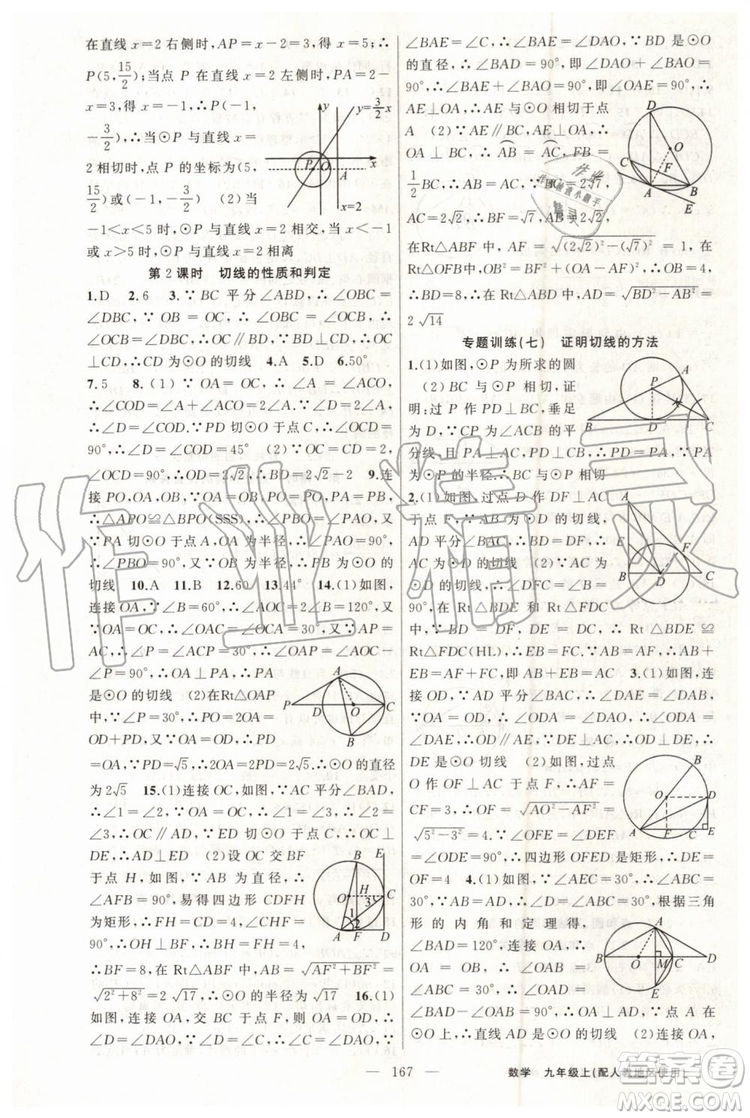 在直线 x=2 右侧时,AP=x-2=3,得 x=5;∴
P(5,15/2);当点 P 在直线 x=2 左侧时,PA=2-
x=3,得 x=-1,∴P(-1,
-3/2),∴当⊙P 与直线 x=
2 相切时,点 P 的坐标为(5,
15/2)或(-1,-3/2) (2)当
-1<x<5 时,⊙P 与直线 x=2 相交,当 x<
-1 或 x>5 时,⊙P 与直线 x=2 相离
y
y=3/2x
P
O
A
x
x=2
第 2 课时 切线的性质和判定
1.D 2.6 3.∵BC 平分∠ABD,∴∠OBC=
∠DBC,∵OB=OC,∴∠OBC=∠OCB,∴
∠OCB=∠DBC,∴OC∥BD,∵BD⊥CD,∴
OC⊥CD,∴CD 为⊙O 的切线 4.A 5.D 6.50°
7.5 8.(1)∵OA=OC,∴∠A=∠ACO,∴
∠COD=∠A+∠ACO=2∠A,∵∠D=2∠A,
∴∠D=∠COD,∵PD 切⊙O 于点 C,∴∠OCD=
90°,∴∠D=∠COD=45° (2)∵∠D=∠COD,
∴OC=CD=2,∴OD=2√2,∴BD=2√2-2 9.连
接 PO,OA,OB,∵OA=OB,PA=PB,OP=
OP,∴△APO≌△BPO(SSS),∴∠PBO=
∠PAO,∵PA 切⊙O 于点 A,∴∠PAO=90°,
∴∠PBO=90°,又∵OB 为半径,∴PB 为⊙O 的
切线 10.A 11.B 12.60 13.44° 14.(1)如图,
连接 OA,∵∠B=60°,∴∠AOC=2∠B=120°,
∵OA=OC,∴∠OAC=∠OCA=30°,又∵AP=
AC,∴∠P=∠ACP=30°,∴∠OAP=∠AOC-
∠P=90°,∴OA⊥PA,又∵OA 为半径,∴PA
是⊙O 的切线 (2)在Rt△OAP
中,∵∠P=30°,∴PO=2OA=
OD+PD,又∵OA=OD,∴PD
=OA,∵PD=√5,∴2OA=2PD=2√5,∴⊙O 的直径
为 2√5 15.(1)连接 OC,∵OA=OC,∴∠1=∠2,
∴∠1=∠3,∴∠2=∠3,∴AD∥OC,∵DE 切⊙O 于点 C,∴OC⊥
DE,∴AD⊥ED (2)设 OC 交 BF
于点 H,∵AB 为直径,∴∠AFB
=90°,易得四边形 CDFH
为矩形,∴FH=CD=4,∠CHF=
90°,∴OH⊥BF,∴BH=FH=4,
∴BF=8,在Rt△ABF 中,AB=√(AF²+BF²)=
√(2²+8²)=2√17,∴⊙O 的半径为√17 16.(1)
如图,连接 OA,交 BC 于点 F,则 OA=OD,
P
A
D
O
C
B
B
E
O
H
3
C
1
2
A
F
D
∠BAE=∠C,∴∠BAE=∠DAO,∵BD 是⊙O
的直径,∴∠BAD=90°,即∠DAO+∠BAO=
90°,∴∠BAE+∠BAO=90°,即∠OAE=90°,∴
AE⊥OA,∴AE 与⊙O 相切于点
A (2)∵AE∥BC,AE⊥OA,∴
OA⊥BC,∴AB=AC,FB=
1/2BC,∴AB=AC,∵BC=2√7,
AC=2√2,∴BF=√7,AB=2√2,
在Rt△ABF 中,AF=√((2√2)²-(√7)²)=1,
在Rt△OFB 中,OB²=BF²+(OB-AF)²,∴OB
=4,∴BD=8,∴在Rt△ABD 中,AD=√(BD²-AB²)=
2√14
D
O
F
A
B
专题训练(七) 证明切线的方法
1.(1)如图,⊙P 为所求的圆
(2)BC 与⊙P 相切,证
明:过 P 作 PD⊥BC,垂足
为 D,∵CP 为∠ACB 的平
分线,且 PA⊥AC,PD⊥CB,∴PD=PA,∵PA
为⊙P 的半径,∴BC 与⊙P 相切
2.(1)如图,过点 D 作 DF⊥AC
于点 F,∵AB 为⊙D 的切线,
∴∠B=90°,∵AD 平分∠BAC,DF⊥AC,∴BD=DF,∴AC 是
⊙D 的切线 (2)∵∠B=∠DFC=
90°,∴在Rt△BDE 和Rt△FDC
中,∵BD=DF,DE=DC,∴Rt△BDE≌
Rt△FDC(HL),∴EB=FC,∵AB=AF,∴AB+
EB=AF+FC,即AB+EB=AC 3.(1)如图,连
接 OD,∵AD 平分∠BAC,∴∠DAE=∠DAO,
∵OA=OD,∴∠OAD=∠ODA,∴∠DAE=
∠ODA,∴OD∥AE,∵DE⊥AC,∴OD⊥DE,∴
DE是⊙O 的切线 (2)如图,过点
O 作 OF⊥AC 于点 F,∴AF=
CF=3,∴OF=√(AO²-AF²)=
√(5²-3²)=4,∵∠OFE=∠DEF
=∠ODE=90°,∴四边形 OFED 是矩形,∴
DE=OF=4 4.(1)如图,连接 OA,∵AD=
AB,∴∠B=∠D=30°,∴根据三角
形的内角和定理得,
∠BAD=120°,连接 OA,∵
OA=OB,∴∠OAB=
∠B=30°,∴∠OAD=∠BAD-∠OAB=90°,即
OA⊥AD,∵点 A 在
⊙O 上,∴直线 AD 是⊙O 的切线 (2)连接 OA,
A
P
B
D
C
B
O
D
E
A
A
B
O
M
C
D
E
— 167 —
数学 九年级上(配人教地区使用)
作业精灵